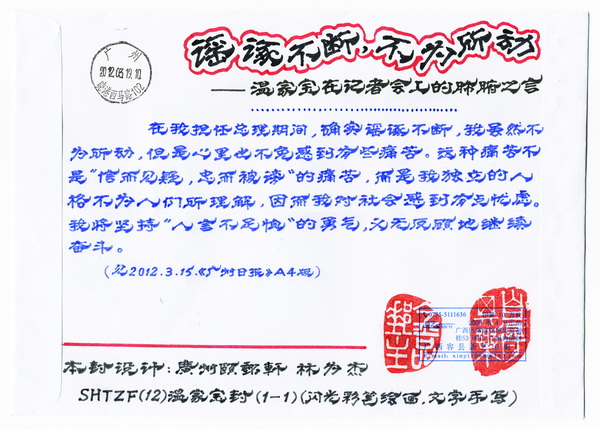 谣诼不断，不为所动
——温家宝在记者会上的肺腑之言
广州
2012.03.19.10
在我担任总理期间，确实谣诼不断，我虽然不
为所动，但是心里也不免感到有些痛苦。这种痛苦不
是“信而见疑，忠而被谤”的痛苦，而是我独立的人
格不为人们所理解，因而我对社会感到有点忧虑。
我将坚持“人言不足恤”的勇气，义无反顾地继续
奋斗。
（见2012.3.15.《广州日报》A4版）
0775-5111636
本封设计：广州颐邮轩 林为杰
SHTZF(12)温家宝封(1-1)(闪光彩笔绘画，文字手写)